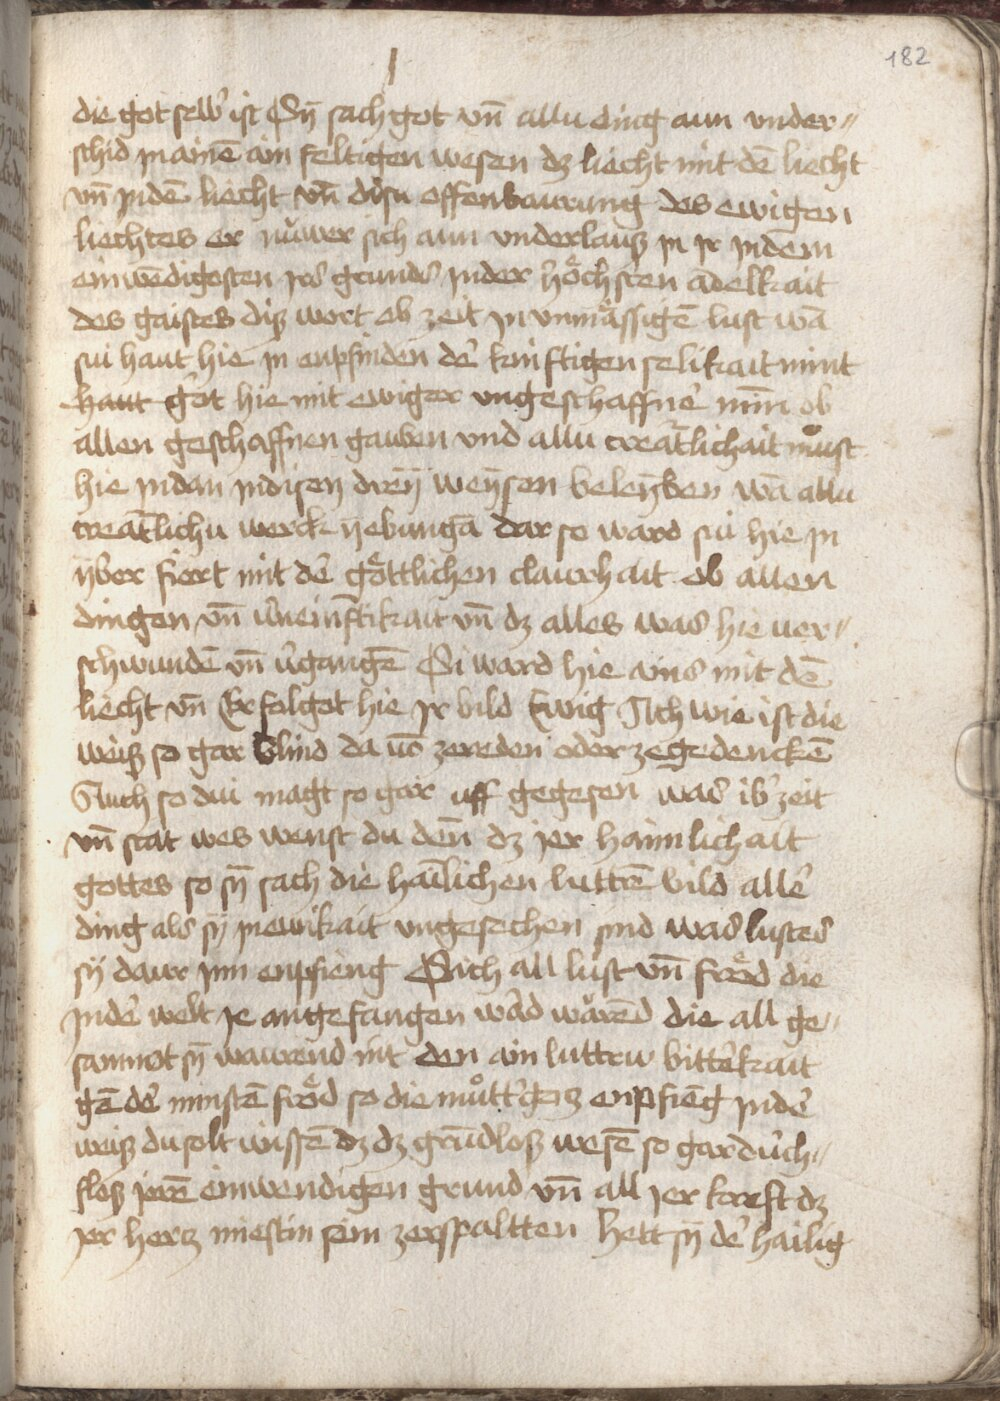 182
die got selb̉ ist Sÿ sach got vn̄ allu ding aun vnder〃
schid in ainē ain feltigen wesen dz liecht mit dē liecht
vn̄ jndē liecht vn̄ disu offenbaurung des ewigen
liechtes er nŭwer sich aun vnderlausz jn jr jndem
einwēdigosten jrs grunds jnder hoͤchsten ādelkait
des gaistes disz wert ob zeit jn vnmaͤssigē lust wā
sui haut hie jn enpfinden dē kinftigen selikait nimt
haut got hie mit ewiger vngeschaffnē min̄ ob
allen geschaffnen gauben vnd allu creatlichait muͦst
hie jndan jndisen dreÿ weÿsen beleÿben wā allu
creatlichu werck ÿebungā dar so ward sui hie jn
ÿber fiert mit dē goͤttlichen claurhait ob allen
dingen vn̄ v̉neinftikait vn̄ dz alles was hie ver〃
schwundē vn̄ v̉gangē Si ward hie ains mit dē
liecht vn̄ Er folget hie jr bild Ewig Ach wie ist die
weisz so gar blind da uō zereden oder zegedenckē
Auch so dui magt so gar uff gegesen was ib̉ zeit
vn̄ stat wes wenst du den̄ dz jer haimlichait
gottes so sÿ sach die haīlichen luttrē bild allē
ding als sÿ jnewikait vngesechen sind was lustes
sÿ daur jnn enpfieng Sich all lust vn̄ froͤd die
jndē welt je angefangen wād wărēd die all ge〃
sammot sÿ wawend nit den ain luttru bittērkait
gē dē minstē froͤd so die muͦttērgotz enpfiēg jndē
weisz du solt wissē dz dz grūdlosz wesē so gar dŭch〃
flosz jerē einwendigen grund vn̄ all jer kreft dz
jer hertz miestin sein zerspaltten hett sÿ dē hailig